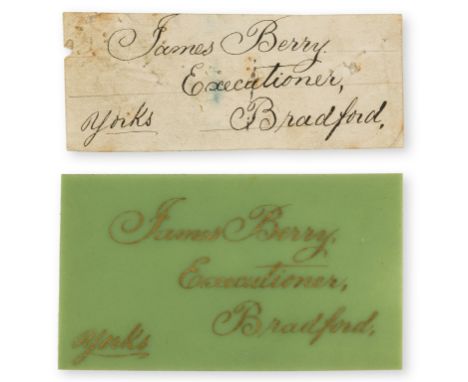 James Berry.
Executioner,
Bradford,
Yorks
James Berry,
Executioner,
Bradford,
Yorks